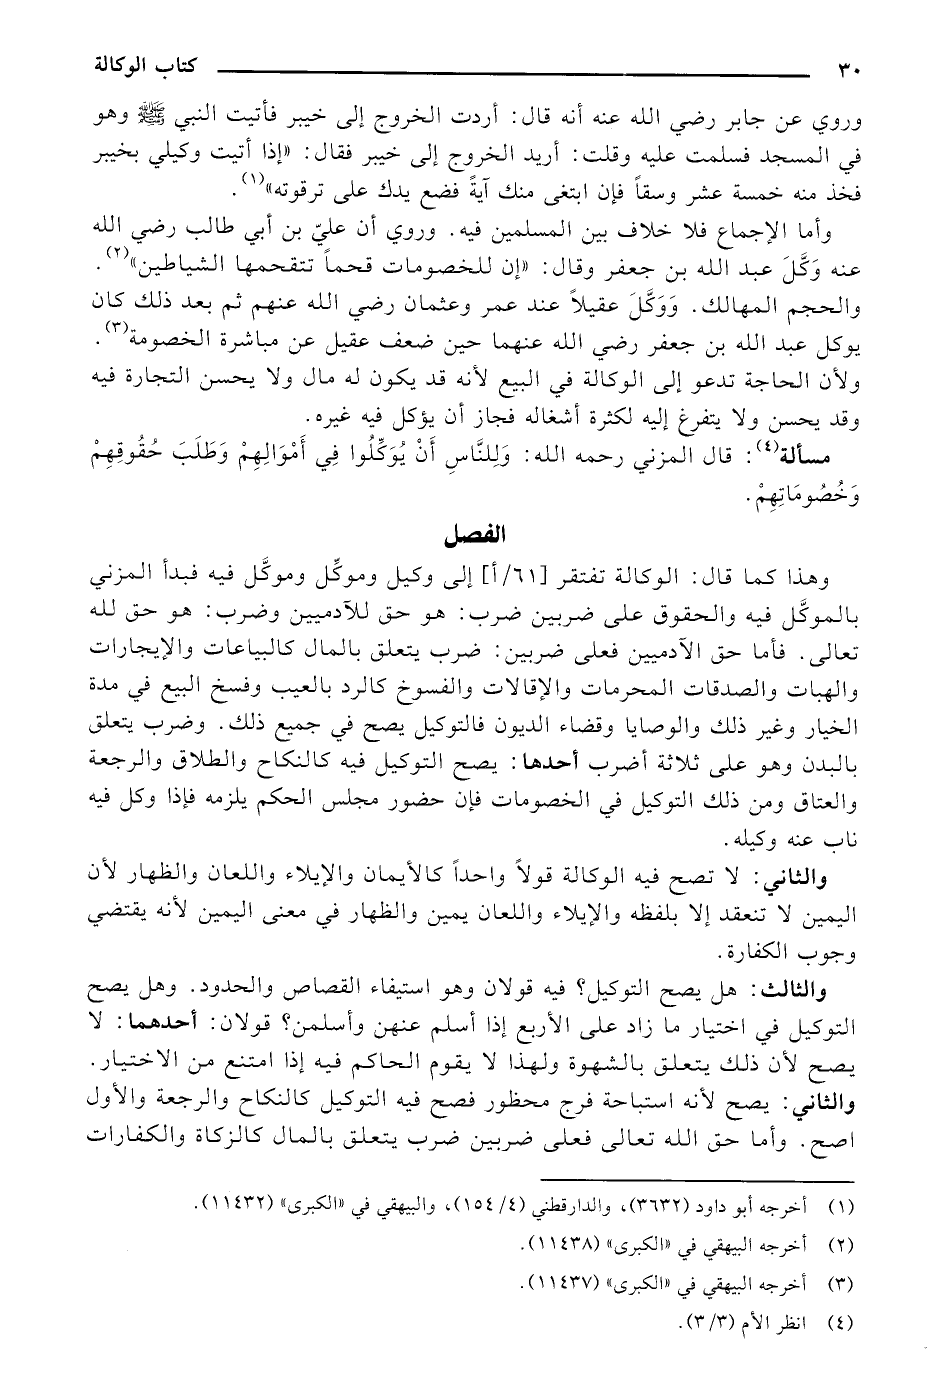 ٣٠ كتاب الوكالة
وروي عن جابر رضي الله عنه أنه قال: أردت الخروج إلى خيبر فأتيت النبي ﷺ وهو
في المسجد فسلمت عليه وقلت: أريد الخروج إلى خيبر فقال: «إذا أتيت وكيلي بخيبر
فخذ منه خمسة عشر وسقاً فإن ابتغى منك آيةً فضع يدك على ترقوته»(١).
وأما الإجماع فلا خلاف بين المسلمين فيه. وروي أن عليّ بن أبي طالب رضي الله
عنه وَكَّلَ عبد الله بن جعفر وقال: «إن للخصومات قحماً تتقحمها الشياطين»(٢).
والحجم المهالك. وَوَكَّلَ عقيلاً عند عمر وعثمان رضي الله عنهم ثم بعد ذلك كان
يوكل عبد الله بن جعفر رضي الله عنهما حين ضعف عقيل عن مباشرة الخصومة(٣).
ولأن الحاجة تدعو إلى الوكالة في البيع لأنه قد يكون له مال ولا يحسن التجارة فيه
وقد يحسن ولا يتفرغ إليه لكثرة أشغاله فجاز أن يؤكل فيه غيره.
مسألة(٤): قال المزني رحمه الله: وَلِلنَّاسِ أَنْ يُوَكِّلُوا فِي أَمْوَالِهِمْ وَطَلَبَ حُقُوقِهِمْ
وَخُصُومَاتِهِمْ.
الفصل
وهذا كما قال: الوكالة تفتقر [٦١/أ] إلى وكيل وموكِّل وموكَّل فيه فبدأ المزني
بالموكَّل فيه والحقوق على ضربين ضرب: هو حق للآدميين وضرب: هو حق لله
تعالى. فأما حق الآدميين فعلى ضربين: ضرب يتعلق بالمال كالبياعات والإيجارات
والهبات والصدقات المحرمات والإقالات والفسوخ كالرد بالعيب وفسخ البيع في مدة
الخيار وغير ذلك والوصايا وقضاء الديون فالتوكيل يصح في جميع ذلك. وضرب يتعلق
بالبدن وهو على ثلاثة أضرب أحدها: يصح التوكيل فيه كالنكاح والطلاق والرجعة
والعتاق ومن ذلك التوكيل في الخصومات فإن حضور مجلس الحكم يلزمه فإذا وكل فيه
ناب عنه وكيله.
والثاني: لا تصح فيه الوكالة قولاً واحداً كالأيمان والإيلاء واللعان والظهار لأن
اليمين لا تنعقد إلا بلفظه والإيلاء واللعان يمين والظهار في معنى اليمين لأنه يقتضي
وجوب الكفارة.
والثالث: هل يصح التوكيل؟ فيه قولان وهو استيفاء القصاص والحدود. وهل يصح
التوكيل في اختيار ما زاد على الأربع إذا أسلم عنهن وأسلمن؟ قولان: أحدهما: لا
يصح لأن ذلك يتعلق بالشهوة ولهذا لا يقوم الحاكم فيه إذا امتنع من الاختيار.
والثاني: يصح لأنه استباحة فرج محظور فصح فيه التوكيل كالنكاح والرجعة والأول
اصح. وأما حق الله تعالى فعلى ضربين ضرب يتعلق بالمال كالزكاة والكفارات
(١) أخرجه أبو داود (٣٦٣٢)، والدارقطني (٤/ ١٥٤)، والبيهقي في «الكبرى» (١١٤٣٢).
(٢) أخرجه البيهقي في «الكبرى» (١١٤٣٨).
(٣) أخرجه البيهقي في «الكبرى» (١١٤٣٧).
(٤) انظر الأم (٣/٣).